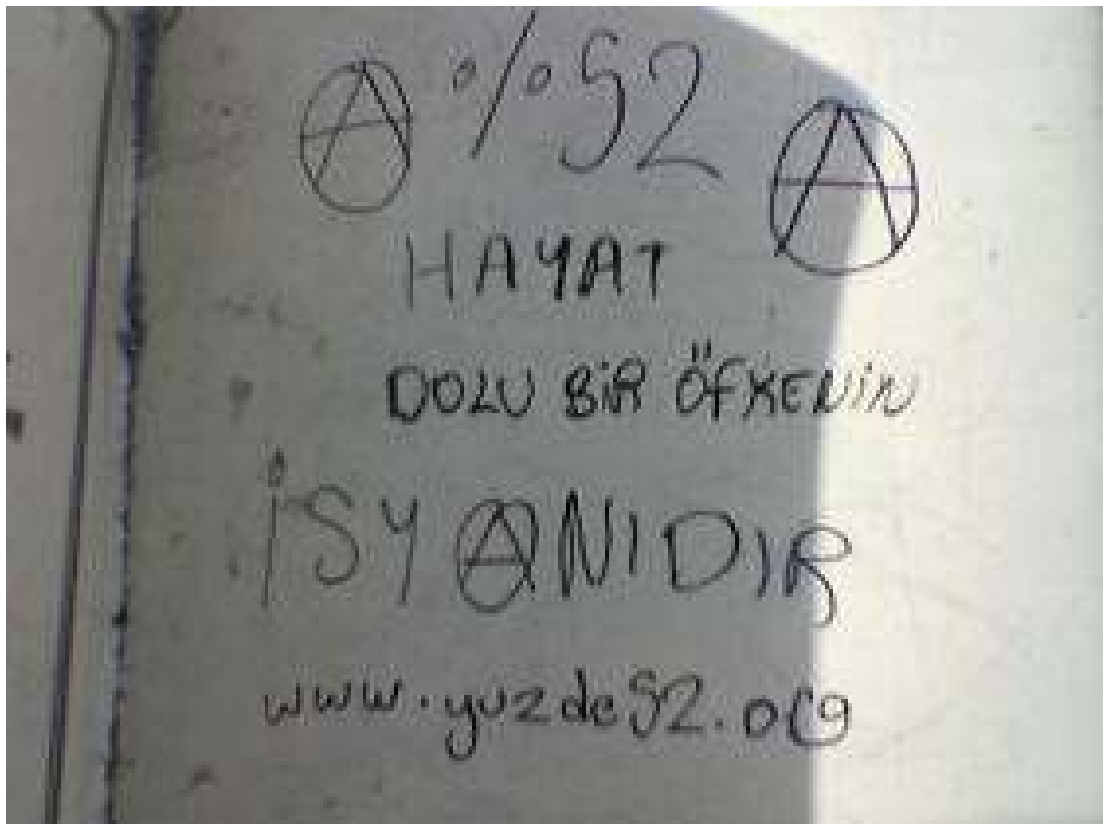 Ⓐ %52 Ⓐ
HAYAT
DOLU BİR ÖFKENİN
İSYⒶNIDIR
www.yuzde52.org